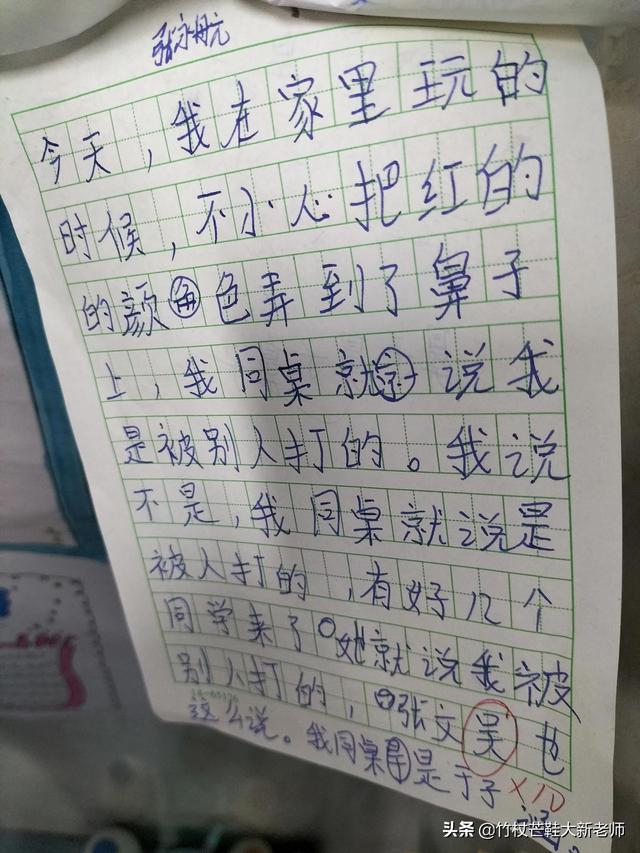 张永航
今天，我在家里玩的
时候，不小心把红的
的颜色弄到了鼻子
上，我同桌就说我
是被别人打的。我说
不是，我同桌就说是
被人打的，有好几个
同学来了。她就说我被
别人打的，张文昊也
这么说。我同桌是于子
×10
头条 @竹杖芒鞋大新老师